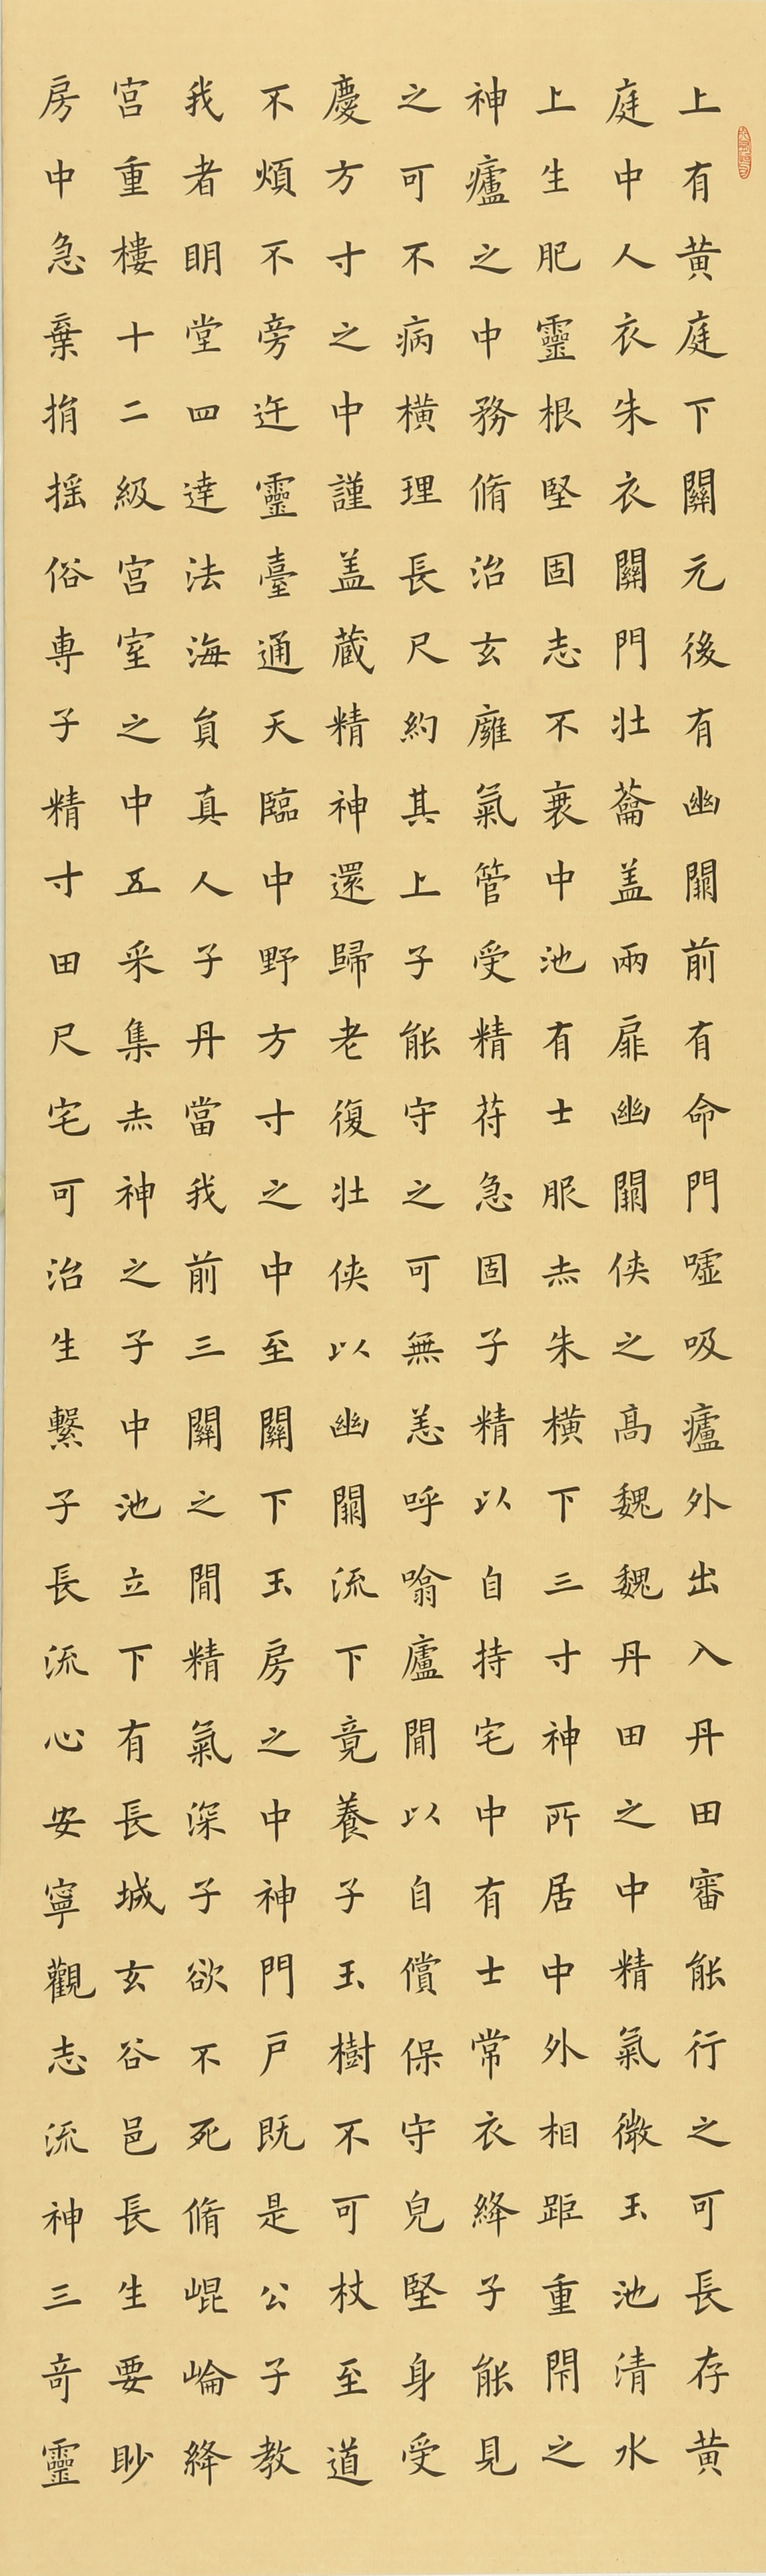 上有黄庭下關元後有幽闕前有命門噓吸廬外出入丹田審能行之可長存黄
庭中人衣朱衣關門壯蘥盖兩扉幽闕俠之高魏魏丹田之中精氣微玉池清水
上生肥靈根堅固志不衰中池有士服赤朱橫下三寸神所居中外相距重閇之
神廬之中務脩治玄癰氣管受精苻急固子精以自持宅中有士常衣絳子能見
之可不病橫理長尺約其上子能守之可無恙呼噏廬間以自償保守皃堅身受
慶方寸之中謹盖藏精神還歸老復壯俠以幽闕流下竟養子玉樹不可杖至道
不煩不旁迕靈臺通天臨中野方寸之中至關下玉房之中神門戶既是公子教
我者眀堂四達法海員真人子丹當我前三關之間精氣深子欲不死脩崐崘絳
宮重樓十二級宮室之中五采集赤神之子中池立下有長城玄谷邑長生要眇
房中急棄捐搖俗専子精寸田尺宅可治生繫子長流心安寧觀志流神三奇靈